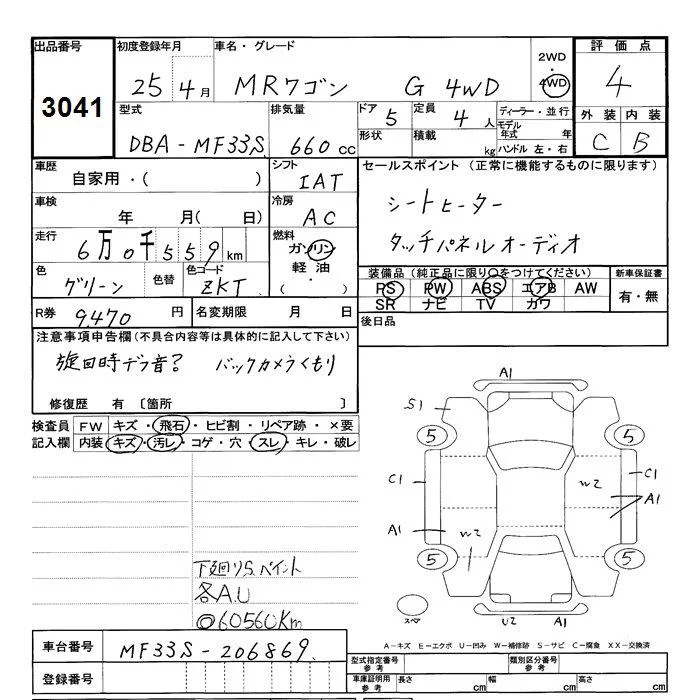 出品番号 初度登録年月 車名・グレード 2WD・4WD 評価点
3041 25 4月 MRワゴン G 4WD 4
型式 排気量 ドア 5 定員 4人 ディーラー・並行 外装 内装
DBA-MF33S 660cc 形状 積載 kg モデル年式 年 ハンドル 左・右 C B
車歴 自家用・( ) シフト IAT セールスポイント (正常に機能するものに限ります)
車検 年 月( 日) 冷房 AC シートヒーター
走行 6万0千559km 燃料 ガソリン 軽油 ・( ) タッチパネルオーディオ
色 グリーン 色替 色コード ZKT 装備品(純正品に限り○をつけてください) 新車保証書
PS PW ABS エアB AW 有・無
SR ナビ TV カワ
R券 9470円 名変期限 月 日 後日品
注意事項申告欄(不具合内容等は具体的に記入して下さい)
旋回時デフ音? バックカメラくもり
修復歴 有 〔箇所 〕
検査員 FW キズ・飛石・ヒビ割・リペア跡・×要
記入欄 内装 キズ・汚レ・コゲ・穴・スレ・キレ・破レ
A1
S1
5 5
C1 W2 C1
A1
A1 W2
5 5
スペア U2 A1
下廻りS.ペイント
各A.U
◎60560Km
A-キズ E-エクボ U-凹み W-補修跡 S-サビ C-腐食 XX-交換済
車台番号 MF33S-206869
型式指定番号 参考 類別区分番号 参考
登録番号 車庫証明用 参考 長さ cm 幅 cm 高さ cm